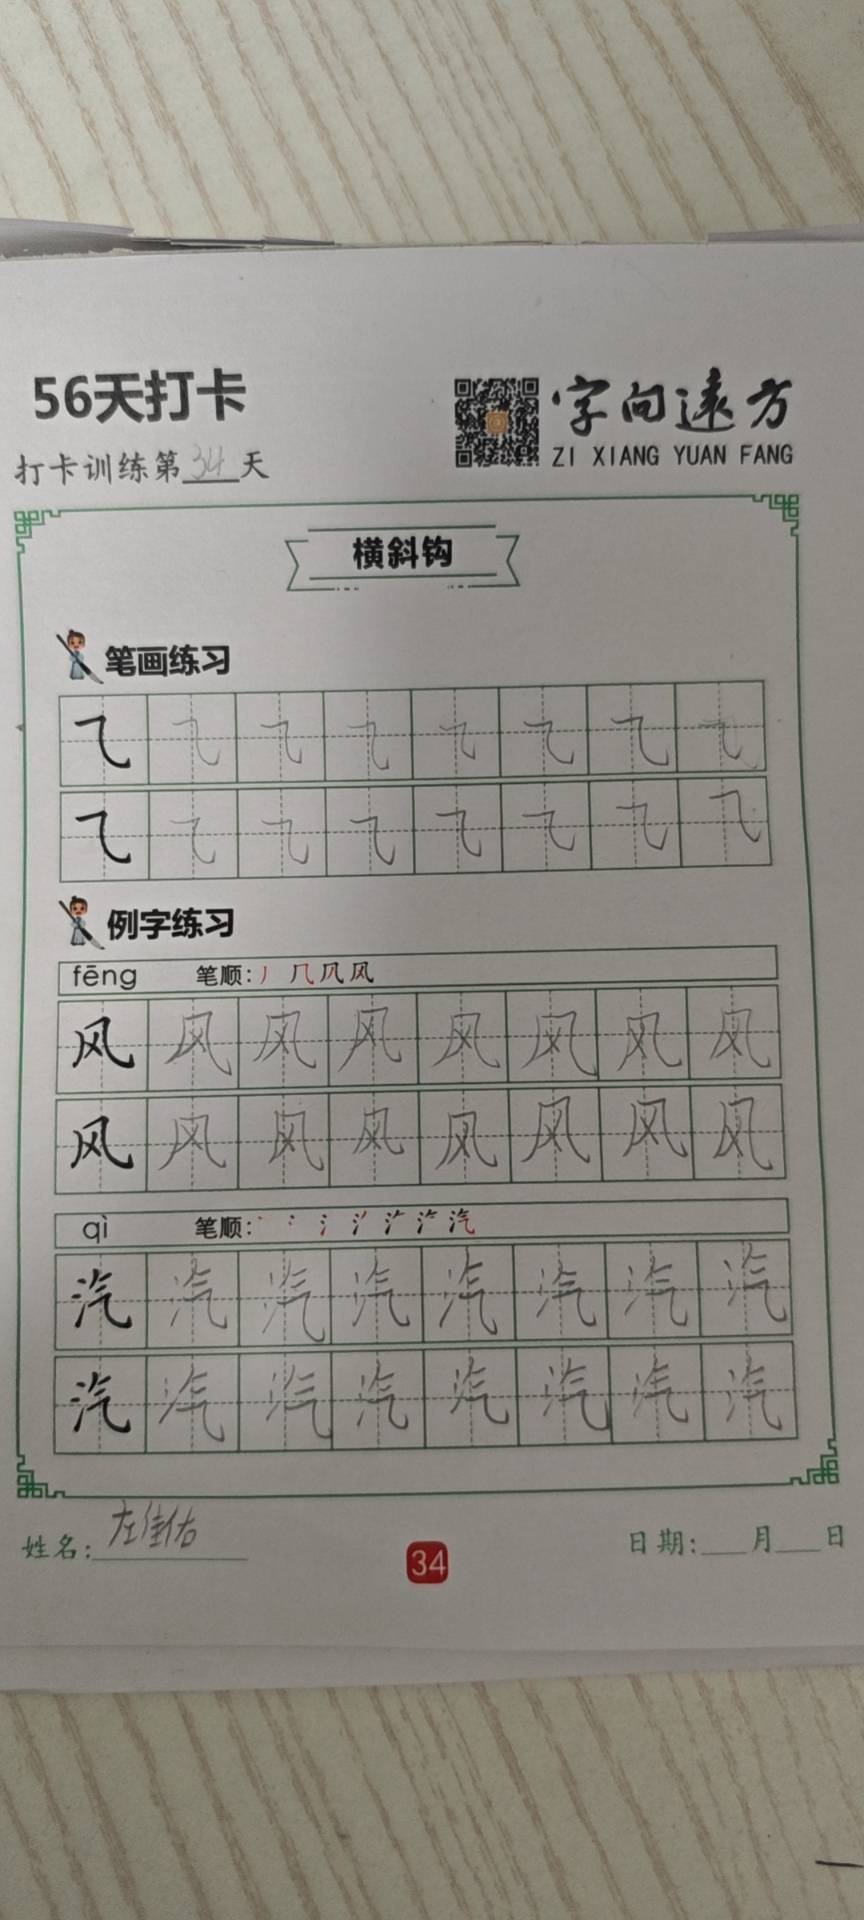 56天打卡
字向遠方
ZI XIANG YUAN FANG
打卡训练第34天
横斜钩
笔画练习
乁 乁 乁 乁 乁 乁 乁 乁
乁 乁 乁 乁 乁 乁 乁 乁
例字练习
fēng 笔顺: 丿 几 凤 风
风 风 风 风 风 风 风 风
风 风 风 风 风 风 风 风
qì 笔顺: 丶 冫 氵 汽
汽 汽 汽 汽 汽 汽 汽 汽
汽 汽 汽 汽 汽 汽 汽 汽
姓名: 左佳佑
34
日期:___月___日